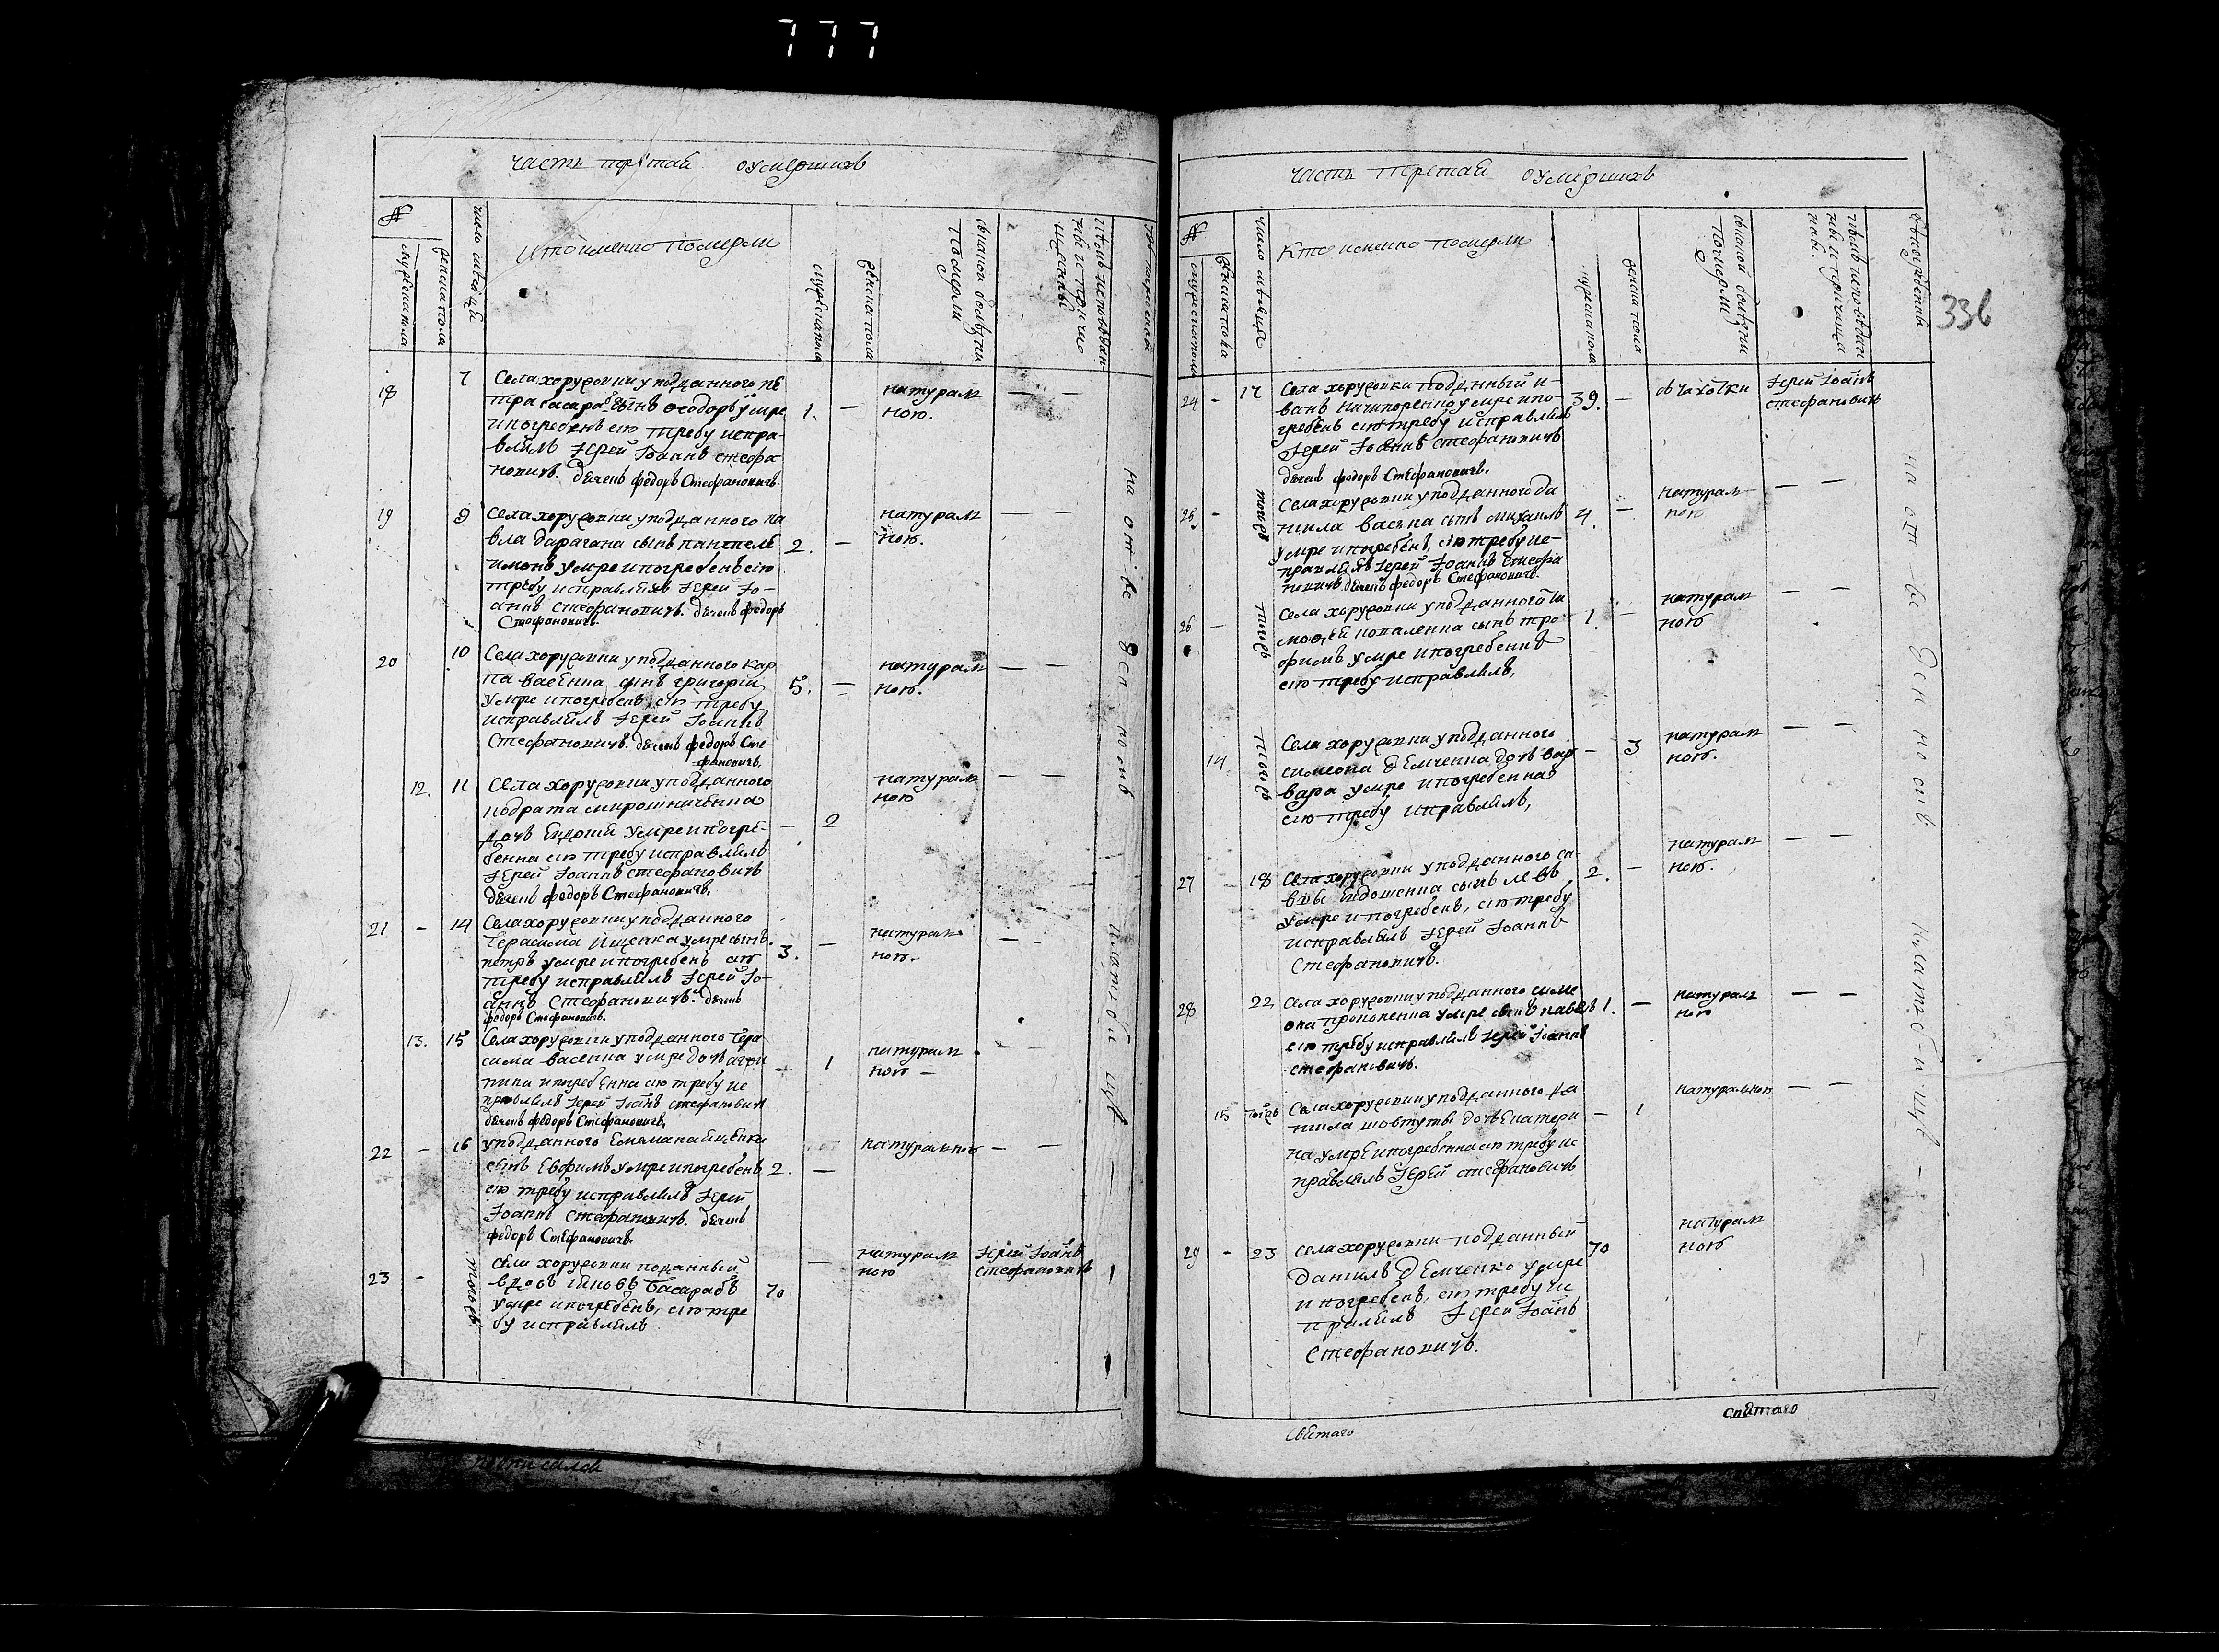 777
часть третая оумершихъ
№
мужеска пола
женска пола
число мѣсяцъ
Кто именно померли
мужеска пола
женска пола
какою болѣзнию померли
18
7
Села хоруговки у подданного пе
тра басараба сынъ феодоръ умре
и погребенъ сію требу испра-
вилъ Іерей Іоаннъ стефа
новичъ. дячекъ федоръ Стефановичъ.
1. —
натурал
ною.
— —
19
9
Села хоруговки у подданного па
вла дарагана сынъ пантеле
имонъ умре и погребенъ сію
требу исправлялъ Іерей Іо-
аннъ стефановичъ. дячекъ федоръ
Стефановичъ.
2. —
натурал
ною.
— —
20
10
Села хоруговки у подданного кар
па васенка сынъ григорій
умре и погребенъ, сію требу
исправлялъ Іерей Іоаннъ
Стефановичъ. дячекъ федоръ Сте-
фановичъ.
5. —
натурал
ною.
— —
12.
11
Села хоруговки у подданного
кодрата мирошниченка
дочь Евдокия умре и погре-
бенна сію требу исправлялъ
Іерей Іоаннъ стефановичъ
дячекъ федоръ Стефановичъ.
— 2
натурал
ною
— —
21 —
14
Села хоруговки у подданного
Герасима Ищенка умре сынъ
петръ умре и погребенъ сію
требу исправлялъ Іерей Іо-
аннъ Стефановичъ. дячекъ
федоръ Стефановичъ.
3. —
натурал
ною.
— —
13.
15
Села хоруговки у подданного Гера
сима васенка умре дочь агри
пина и погребенна сію требу ис
правлялъ Іерей Іоанъ стефановичъ
дячекъ федоръ Стефановичъ.
— 1
натурал
ною —
— —
22 —
16
у подданного Емелиана Ищенка
сынъ Евфимъ умре и погребенъ
сію требу исправлялъ Іерей
Іоаннъ Стефановичъ. дячекъ
федоръ Стефановичъ.
2. —
натурал ною
— —
23 —
тогожъ
Села хоруговки подданный
вдовъ Басарабъ
умре и погребенъ, сію тре
бу исправлялъ
70 —
натурал
ною
Іерей Іоанъ
Стефановичъ
на от ве
часть третая оумершихъ
336
№
мужеска пола
женска пола
число мѣсяцъ
Кто именно померли
мужеска пола
женска пола
какой болѣзни
померли
24 —
17
Села хоруговки подданный и-
ванъ ничипоренко умре и по-
гребенъ сію требу исправлялъ
Іерей Іоаннъ стефановичъ
дячекъ федоръ Стефановичъ.
39. —
Іерей Іоанъ
стефановичъ
25 —
тогожъ
Села хоруговки у подданного да
нила васька сынъ михаилъ
умре и погребенъ, сію требу ис-
правлялъ Іерей Іоаннъ стефа
новичъ дячекъ федоръ Стефановичъ.
4. —
натурал
ною
— —
26 —
тогожъ
Села хоруговки у подданного ти
мофей коваленка сынъ тро
фимъ умре и погребенъ
сію требу исправлялъ,
1. —
натурал
ною
— —
14
тогожъ
Села хоруговки у подданного
симеона демченка дочь вар
вара умре и погребенна
сію требу исправлялъ,
— 3
натурал
ною.
— —
27
18
Села хоруговки у подданного са
ввы Евдошенка сынъ левъ
умре и погребенъ, сію требу
исправлялъ Іерей Іоаннъ
Стефановичъ.
2. —
натурал
ною.
— —
28
22
Села хоруговки у подданного симе
она прокопенка умре сынъ павелъ
сію требу исправлялъ Іерей Іоаннъ
стефановичъ.
1. —
натурал
ною
— —
15
тогожъ
Села хоруговки у подданного да
нила шовтуты дочь Екатери
на умре и погребенна сію требу ис
правлялъ Іерей стефановичъ
— 1
натуралною
— —
29 —
23
Села хоруговки подданный
Данилъ Демченко умре
и погребенъ, сію требу ис
правлилъ Іерей Іоанъ
Стефановичъ.
70
натурал
ною